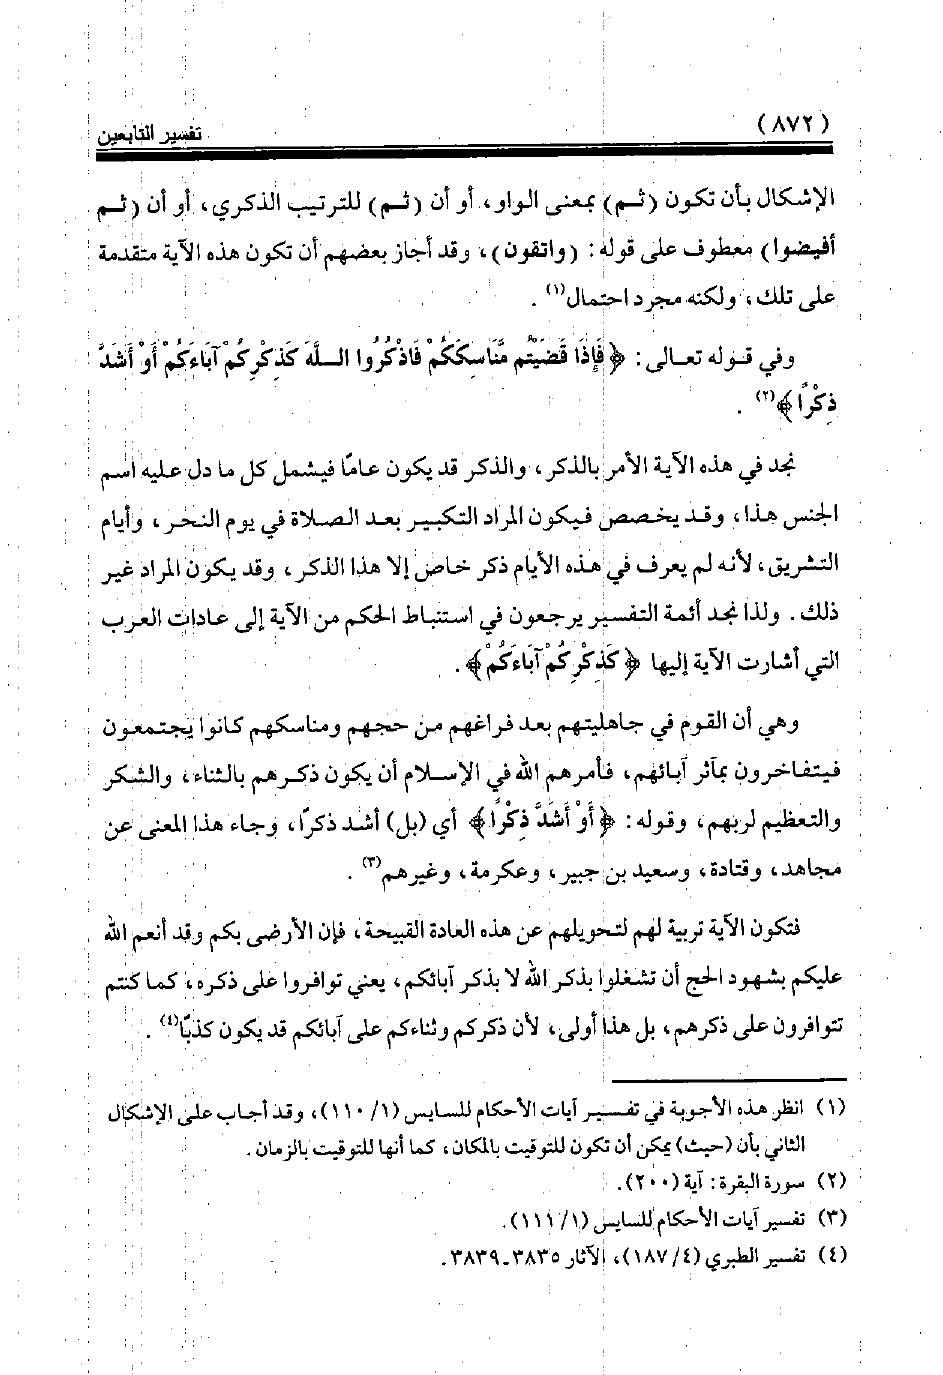 (٨٧٢) تفسير التابعين
الإشكال بأن تكون (ثم) بمعنى الواو، أو أن (ثم) للترتيب الذكري، أو أن (ثم
أفيضوا) معطوف على قوله: (واتقون)، وقد أجاز بعضهم أن تكون هذه الآية متقدمة
على تلك، ولكنه مجرد احتمال(١).
وفي قوله تعالى: ﴿فَإِذَا قَضَيْتُم مَّنَاسِكَكُمْ فَاذْكُرُوا اللَّهَ كَذِكْرِكُمْ آبَاءَكُمْ أَوْ أَشَدَّ
ذِكْرًا﴾(٢).
نجد في هذه الآية الأمر بالذكر، والذكر قد يكون عامًا فيشمل كل ما دل عليه اسم
الجنس هذا، وقد يخصص فيكون المراد التكبير بعد الصلاة في يوم النحر، وأيام
التشريق، لأنه لم يعرف في هذه الأيام ذكر خاص إلا هذا الذكر، وقد يكون المراد غير
ذلك. ولذا نجد أئمة التفسير يرجعون في استنباط الحكم من الآية إلى عادات العرب
التي أشارت الآية إليها ﴿كَذِكْرِكُمْ آبَاءَكُمْ﴾.
وهي أن القوم في جاهليتهم بعد فراغهم من حجهم ومناسكهم كانوا يجتمعون
فيتفاخرون بمآثر آبائهم، فأمرهم الله في الإسلام أن يكون ذكرهم بالثناء، والشكر
والتعظيم لربهم، وقوله: ﴿أَوْ أَشَدَّ ذِكْرًا﴾ أي (بل) أشد ذكرًا، وجاء هذا المعنى عن
مجاهد، وقتادة، وسعيد بن جبير، وعكرمة، وغيرهم(٣).
فتكون الآية تربية لهم لتحويلهم عن هذه العادة القبيحة، فإن الأرضى بكم وقد أنعم الله
عليكم بشهود الحج أن تشغلوا بذكر الله لا بذكر آبائكم، يعني توافروا على ذكره، كما كنتم
تتوافرون على ذكرهم، بل هذا أولى، لأن ذكركم وثناءكم على آبائكم قد يكون كذبًا(٤).
(١) انظر هذه الأجوبة في تفسير آيات الأحكام للسايس (١/ ١١٠)، وقد أجاب على الإشكال
الثاني بأن (حيث) يمكن أن تكون للتوقيت بالمكان، كما أنها للتوقيت بالزمان.
(٢) سورة البقرة: آية (٢٠٠).
(٣) تفسير آيات الأحكام للسايس (١/ ١١١).
(٤) تفسير الطبري (٤/ ١٨٧)، الآثار ٣٨٣٥-٣٨٣٩.